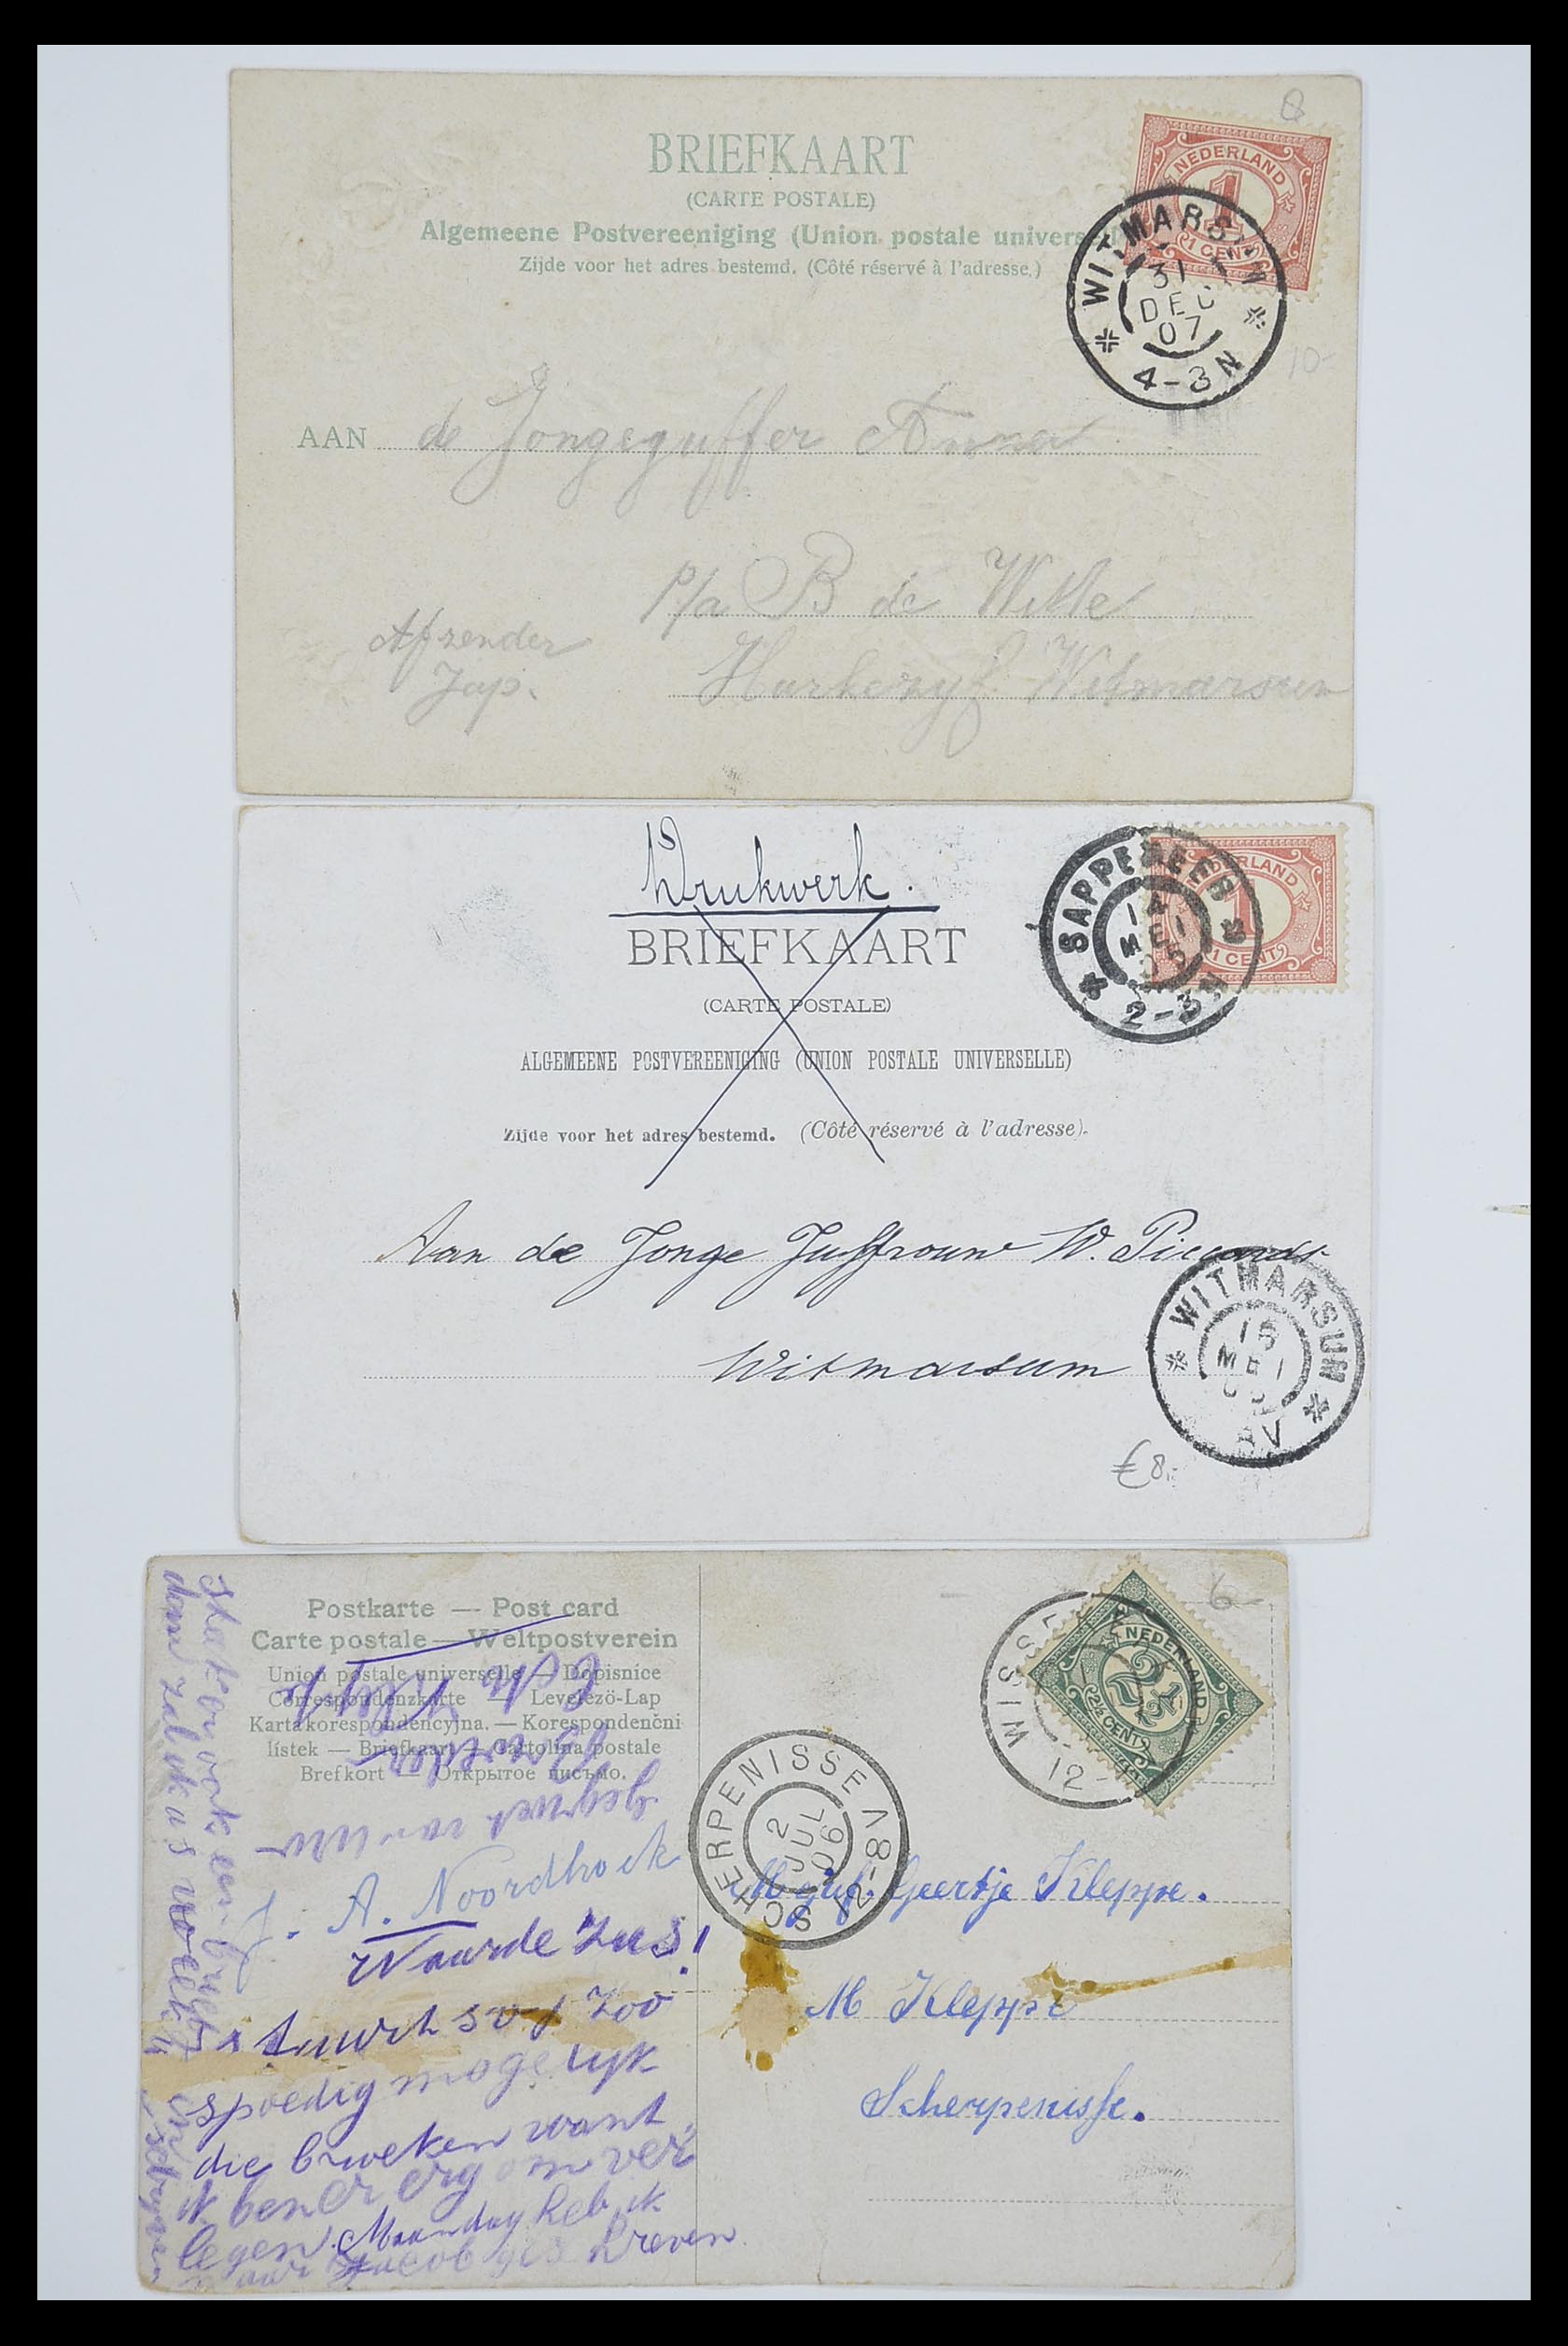 BRIEFKAART
(CARTE POSTALE)
Algemeene Postvereeniging (Union postale universel
Zijde voor het adres bestemd. (Côté réservé à l'adresse.)
NEDERLAND
1
1 CENT
WITMARSUM
31
DEC
07
4-3N
10-
AAN de Jongeguffer Anna
p/a B de Witte
Afzender
Jap.
Witmarsum
Drukwerk.
BRIEFKAART
(CARTE POSTALE)
ALGEMEENE POSTVEREENIGING (UNION POSTALE UNIVERSELLE)
Zijde voor het adres bestemd. (Côté réservé à l'adresse).
NEDERLAND
1
1 CENT
SAPPEMEER
14
MEI
05
2-3N
Aan de Jonge Juffrouw W. Piccardt
Witmarsum
WITMARSUM
15
MEI
05
8V
€8,-
Postkarte — Post card
Carte postale — Weltpostverein
Union postale universelle — Dopisnice
Correspondenzkarte — Levelezö-Lap
Karta korespondencyjna. — Korespondenční
lístek — Briefkaart — Cartolina postale
Brefkort — Открытое письмо.
gegroet van uw
J. A. Noordhoek
Waarde Zus!
stuurt s v p zoo
spoedig mogelijk
die broeken want
ik ben er erg om ver
legen. Maandag heb ik
naar Jacob geschreven
6
NEDERLAND
2½
2½ CENT
WISSE
12-
SCHERPENISSE
2
JUL
06
8-12V
Mejuf. Geertje Kleppe.
M Kleppe
Scherpenisse.